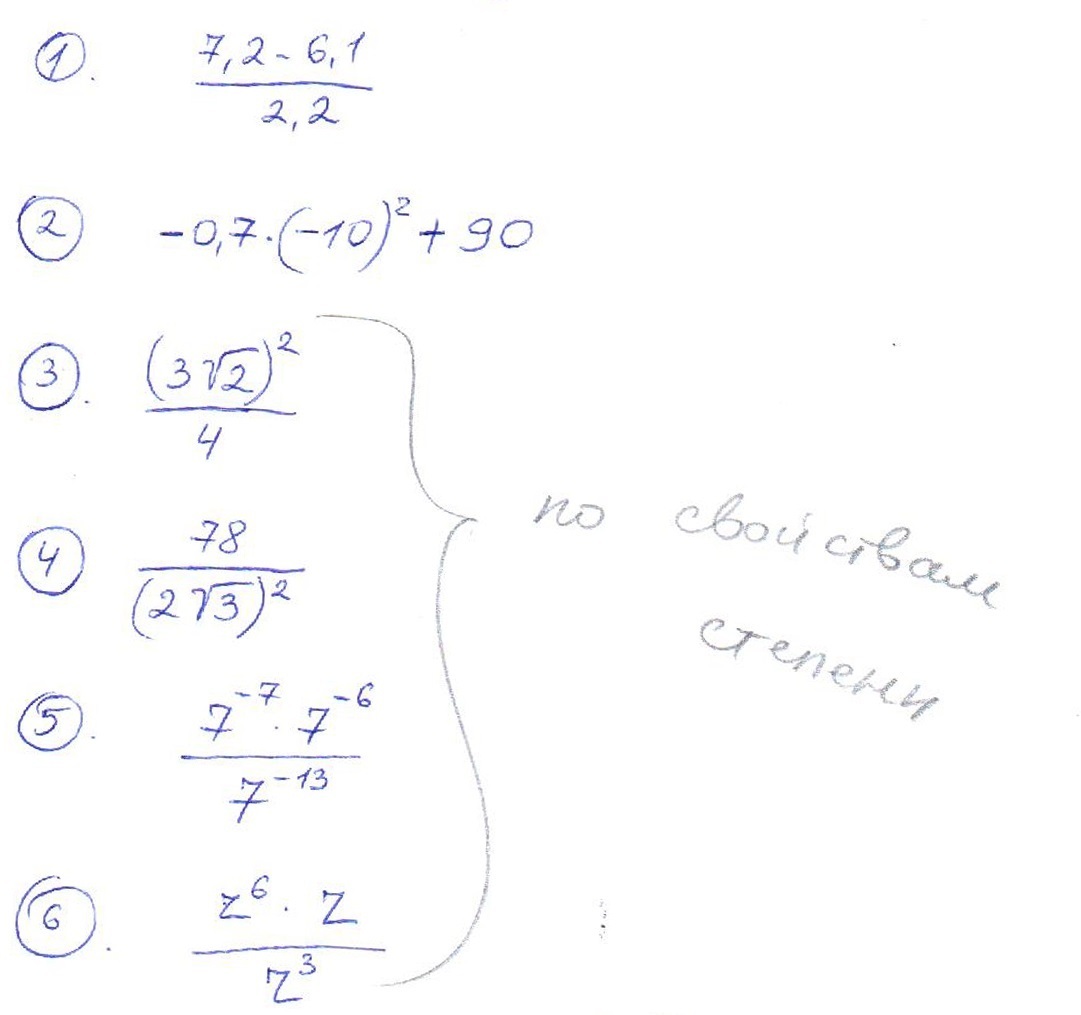 ①. (7,2 - 6,1)/2,2
② -0,7·(-10)² + 90
③. (3√2)²/4
④ 78/(2√3)²
⑤. 7⁻⁷ · 7⁻⁶/7⁻¹³
⑥. z⁶ · z/z³
по свойствам
степени